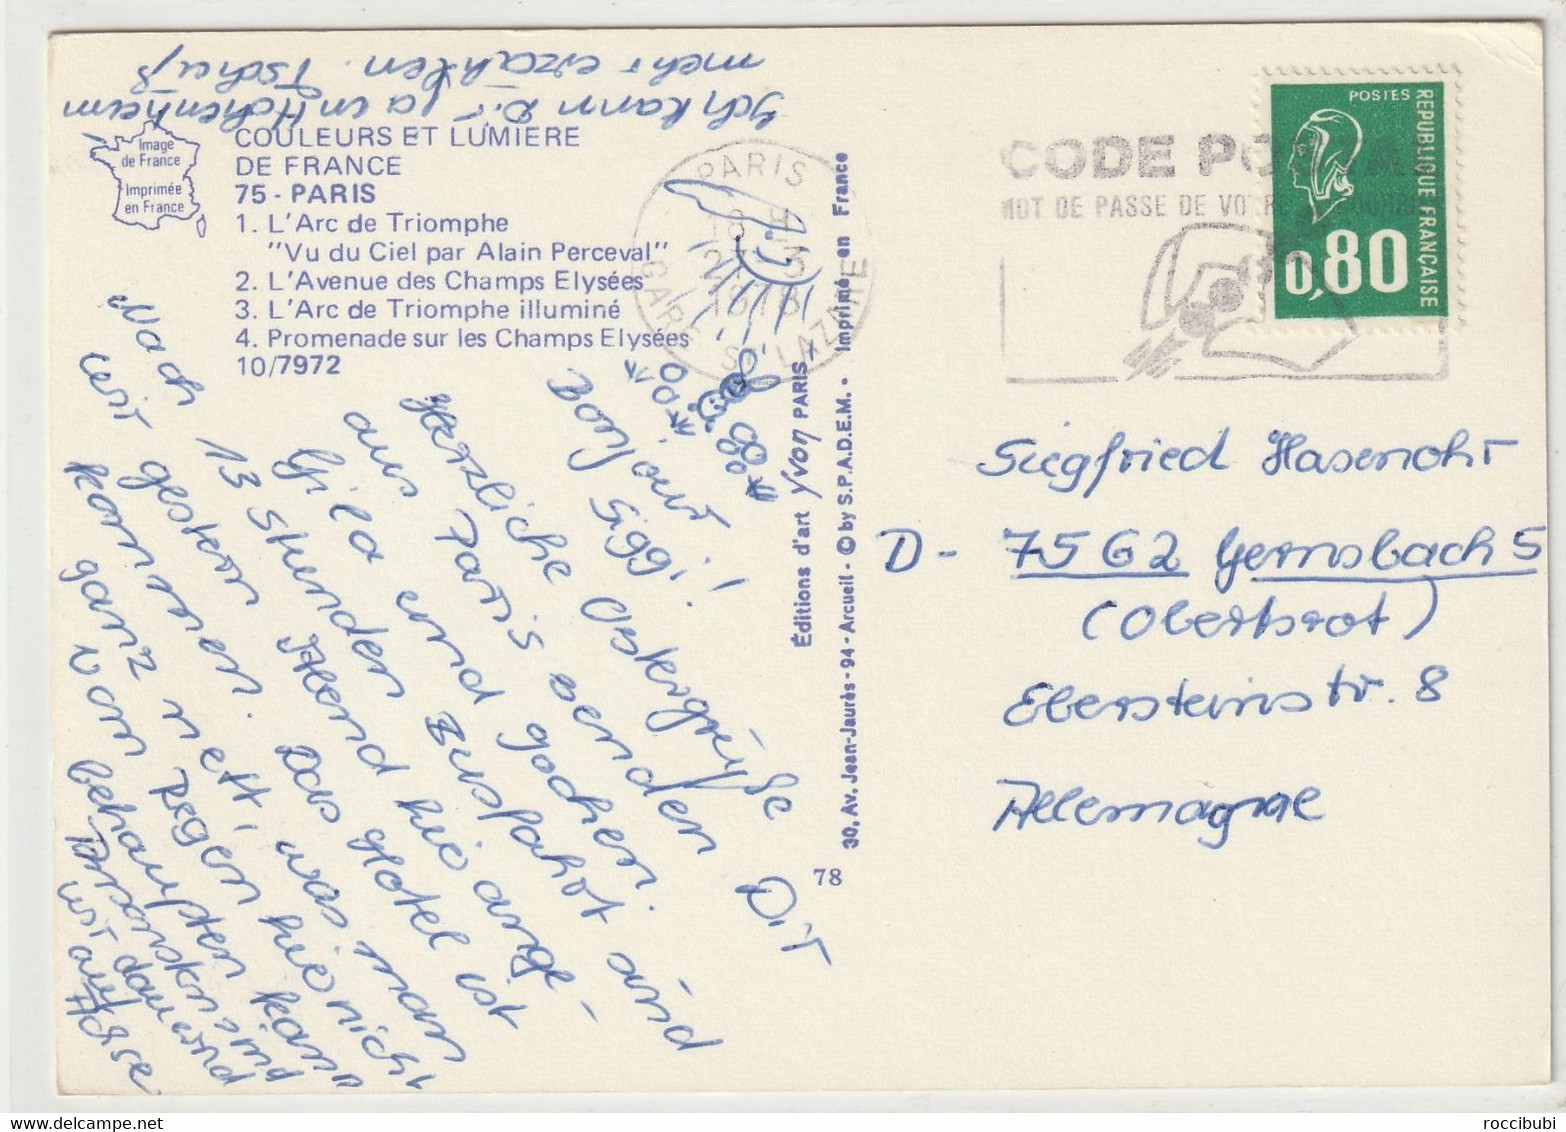 Ich kann Dir ja in Hohenheim
mehr erzählen. Tschüß
Image
de France
Imprimée
en France
COULEURS ET LUMIERE
DE FRANCE
75 - PARIS
1. L'Arc de Triomphe
"Vu du Ciel par Alain Perceval"
2. L'Avenue des Champs Elysées
3. L'Arc de Triomphe illuminé
4. Promenade sur les Champs Elysées
10/7972
Bonjour Siggi!
Herzliche Ostergrüße Dir
aus Paris senden
Gila und Jochen.
Nach 13 Stunden Busfahrt sind
wir gestern Abend hie ange-
kommen. Das Hotel ist
ganz nett, was man
vom Regen hie nicht
behaupten kann
sind
wir dauernd
auf
Achse
Éditions d'art yvon PARIS
30, Av. Jean-Jaurès - 94 - Arcueil - © by S.P.A.D.E.M. - Imprimé en France
78
PARIS
18 H
27-3
1978
GARE ST LAZARE
CODE POSTAL
MOT DE PASSE DE VOTRE COURRIER
POSTES
REPUBLIQUE FRANÇAISE
0,80
Siegfried Hasenohr
D - 7562 Gernsbach 5
(Obertsrot)
Ebersteinstr. 8
Allemagne
roccibubi